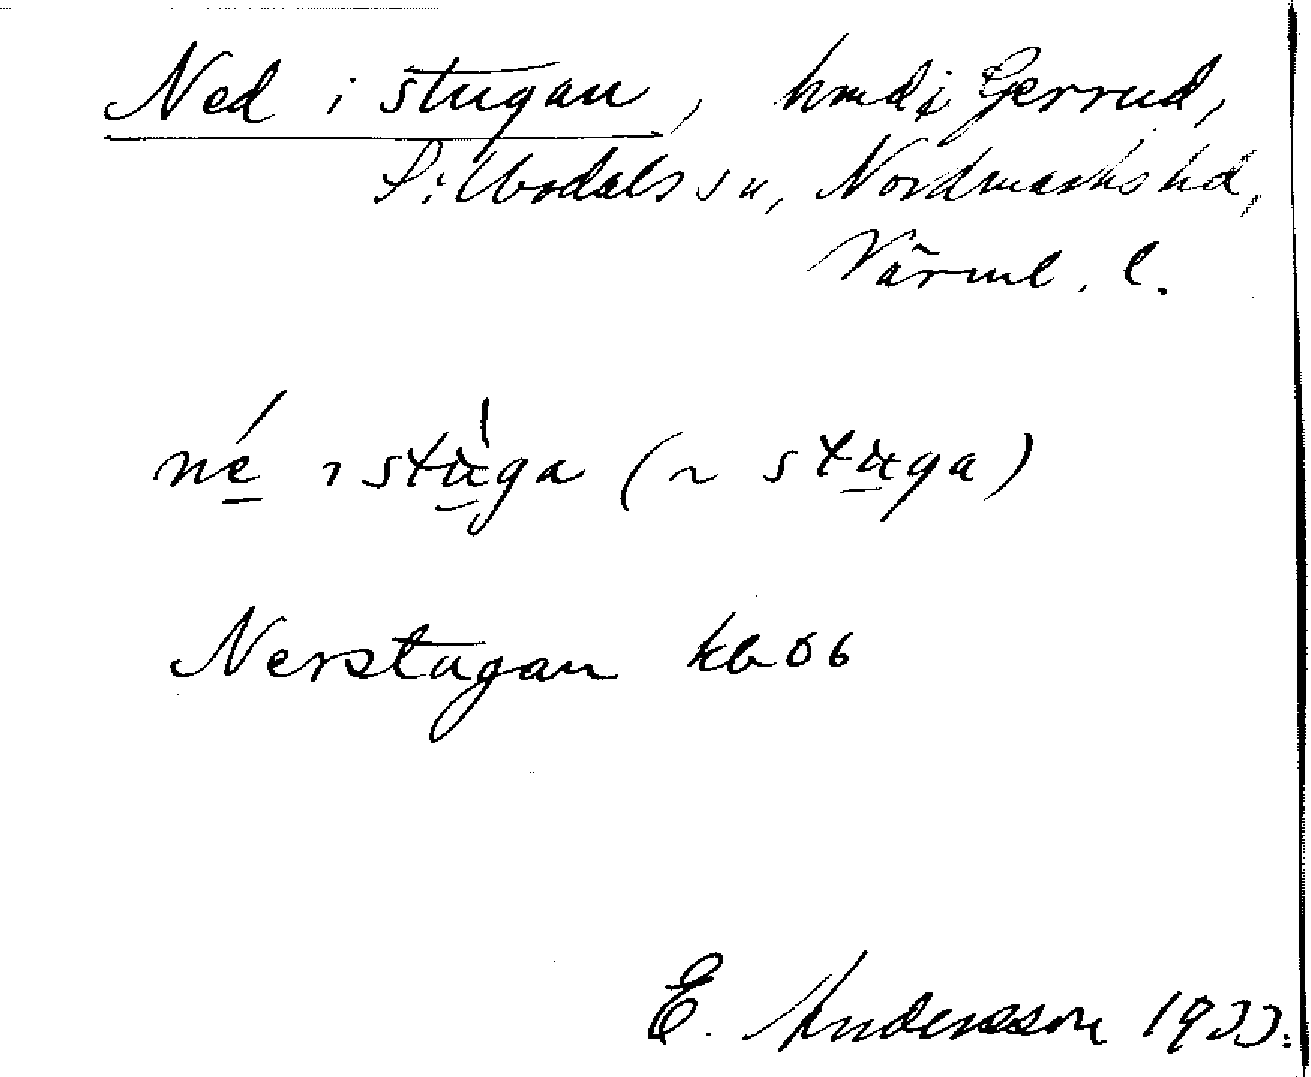 Ned i stugan, hmd i Gerrud,
Silbodals sn, Nordmarks hd,
Värml. l.
né ı stu̱ga (~ stu̱ga)
Nerstugan kb 06
E. Andersson 1933.